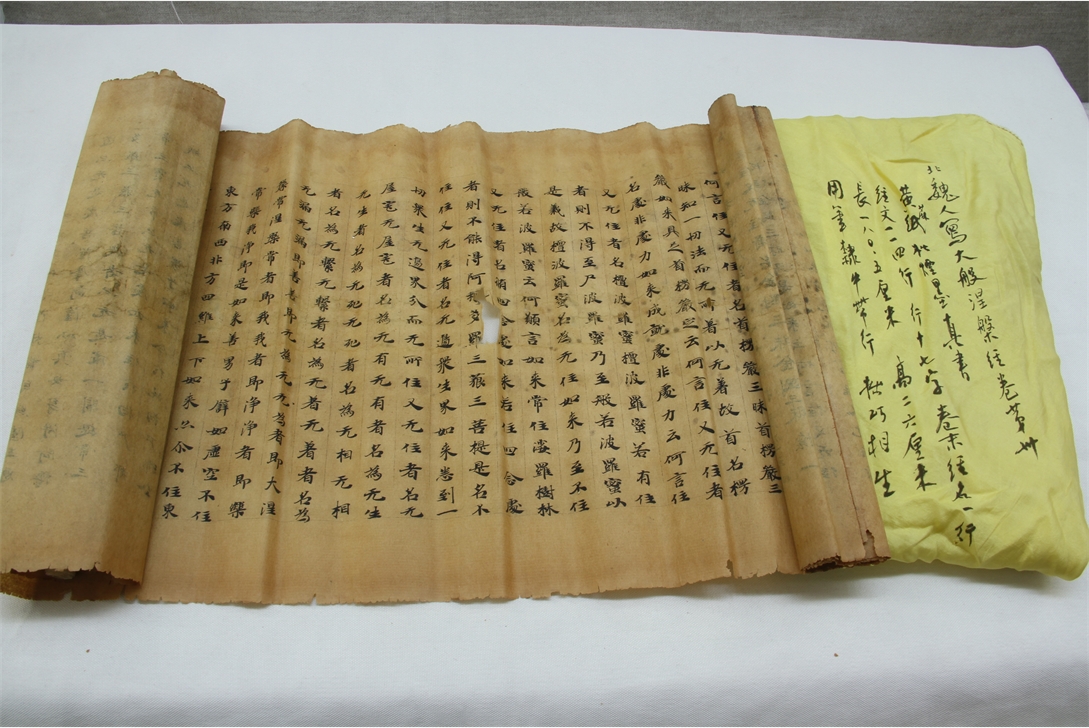 北魏人寫大般涅槃经卷第卅
真書
经文一一四行 行十七字 卷末经名一行
長一八〇·五厘米 高二六厘米
用筆隸中帶行 敧巧相生
何言住又无住者名首楞嚴三昧首楞嚴三
昧知一切法而无所著以无著故首名楞
嚴如来具足首楞嚴定云何言住又无住者
名處非處力如来成就處非處力云何言住
又无住者名檀波羅蜜檀波羅蜜若有住
者則不得至尸波羅蜜乃至般若波羅蜜以
是義故檀波羅蜜名為无住如来乃至不住
般若波羅蜜云何願言如来常住娑羅樹林
又无住者名脩四念處如来若住四念處
者則不能得阿耨多羅三藐三菩提是名不
住住又无住者名无邊衆生界如来悉到一
切衆生无邊界分而无所住又无住者名无
屋宅无屋宅者名為无有无有者名為无生
无生者名為无死无死者名為无相无相
者名為无繫无繫者名為无著无著者名為
无漏无漏即善善即无為无為者即大涅
槃常涅槃常者即我我者即淨淨者即樂
常樂我淨即是如来善男子譬如虚空不住
東方南西北方四維上下如来亦尒不住東